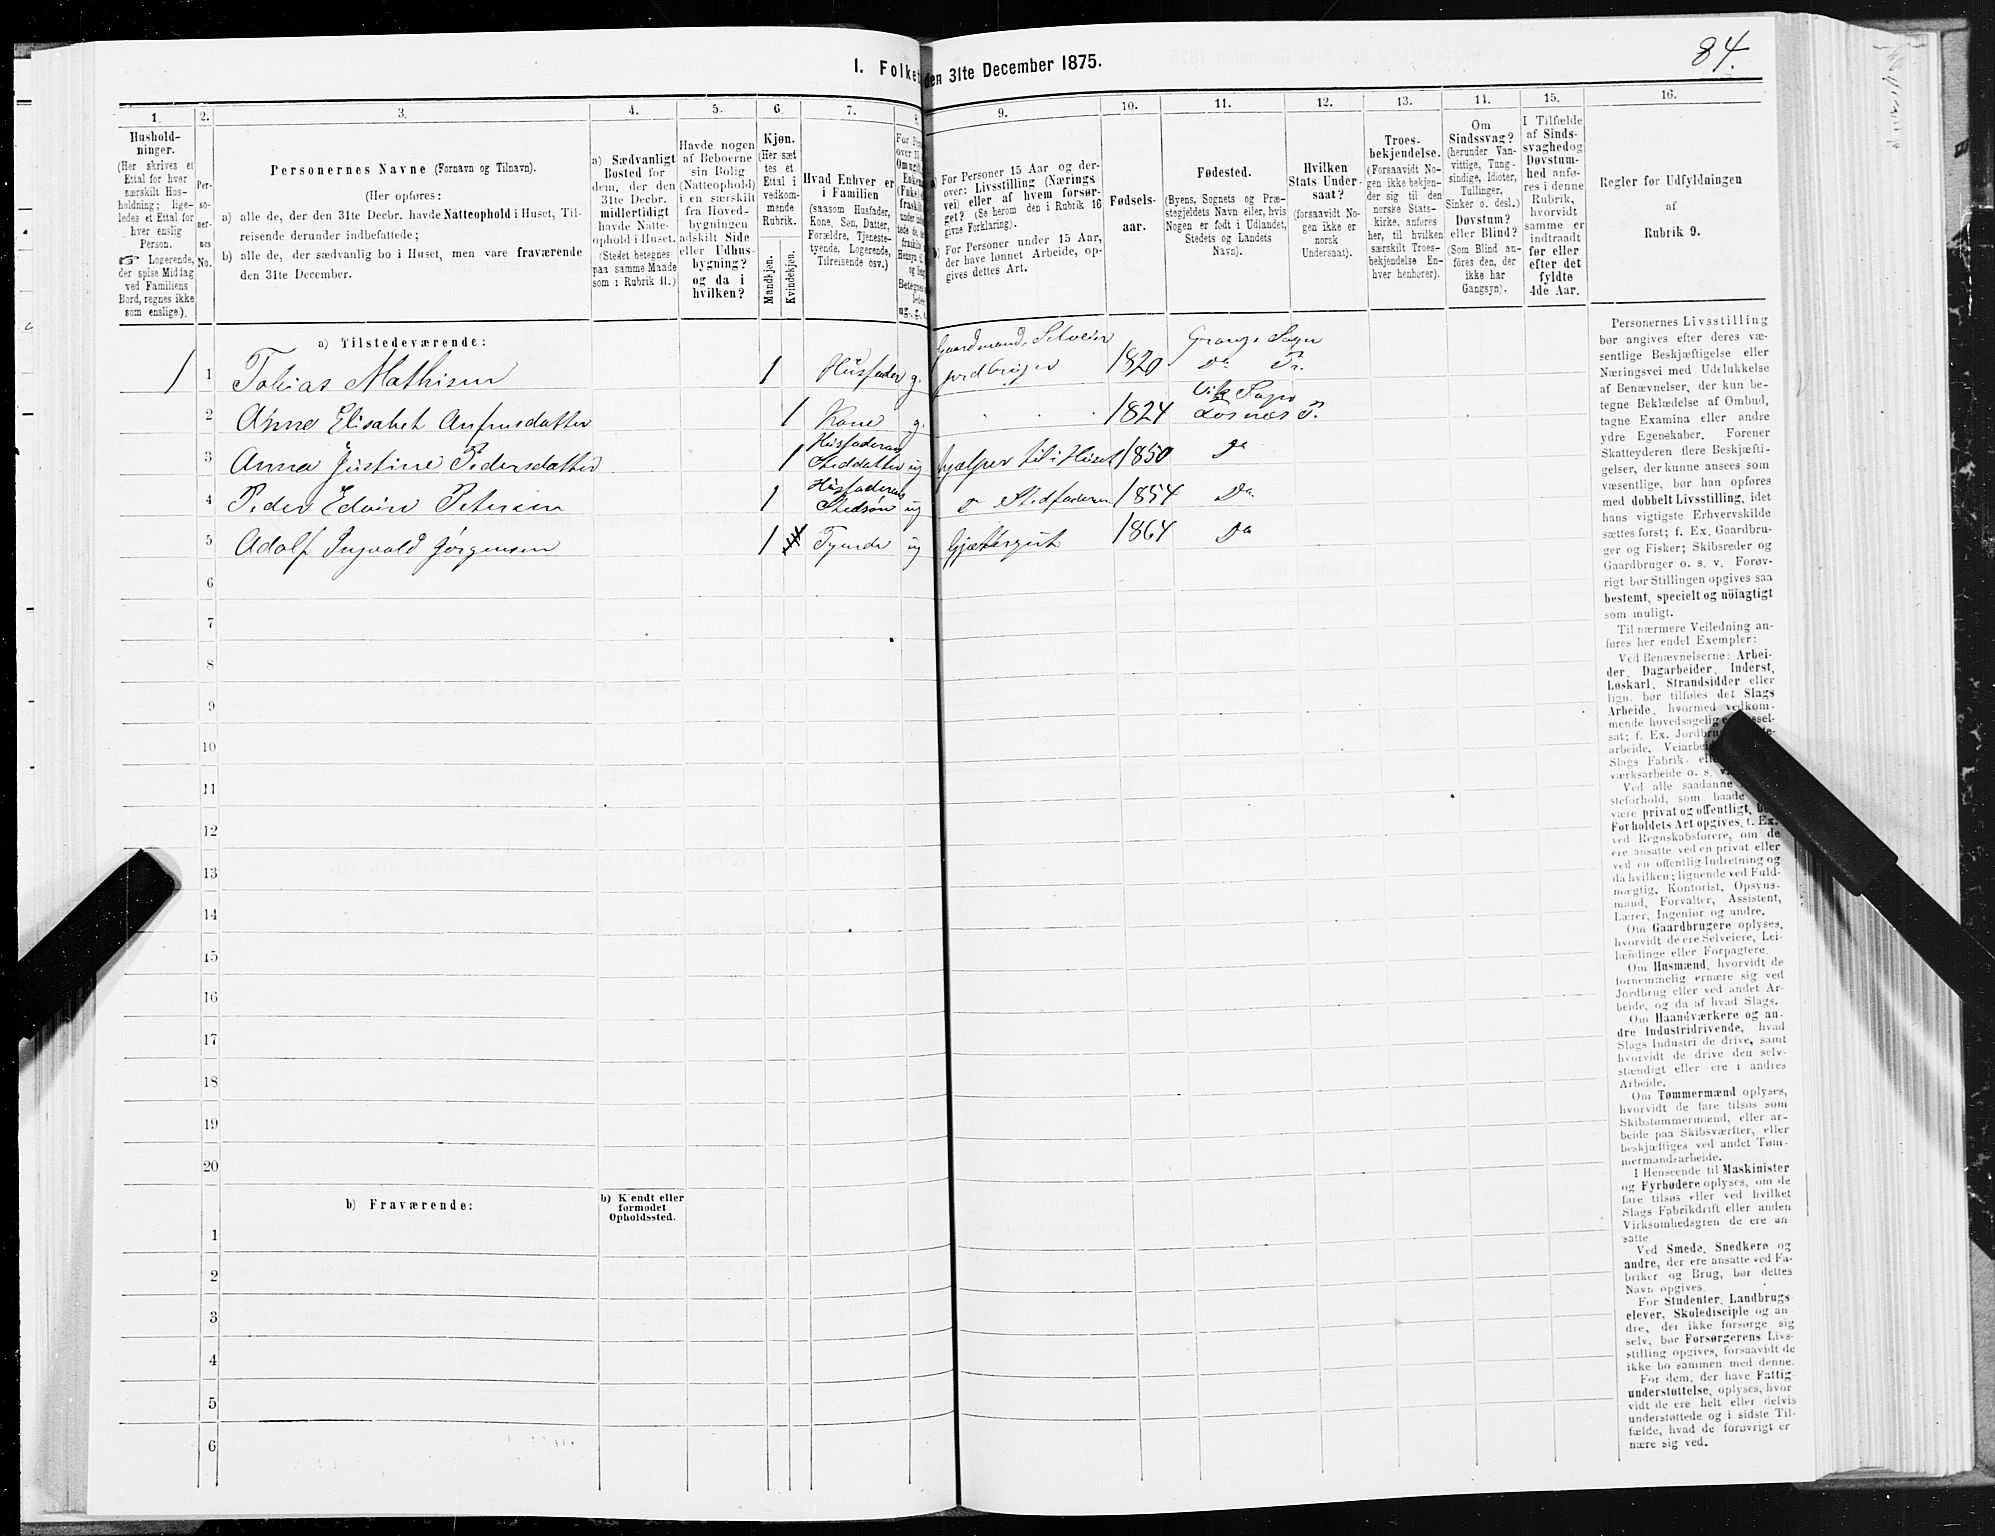 84.
I. Folket
den 31te December 1875.
1.
2.
3.
4.
5.
6.
7.
8.
9.
10.
11.
12.
13.
14.
15.
16.
Hushold-
ninger.
(Her skrives et
Ettal for hver
særskilt Hus-
holdning; lige-
ledes et Ettal for
hver enslig
Person.
☞ Logerende,
der spise Middag
ved Familiens
Bord, regnes ikke
som enslige).
Per-
so-
ner-
nes
No.
Personernes Navne (Fornavn og Tilnavn).
(Her opføres:
a) alle de, der den 31te Decbr. havde Natteophold i Huset, Til-
reisende derunder indbefattede;
b) alle de, der sædvanlig bo i Huset, men vare fraværende
den 31te December.
a) Sædvanligt
Bosted for
dem, der den
31te Decbr.
midlertidigt
havde Natte-
ophold i Huset.
(Stedet betegnes
paa samme Maade
som i Rubrik 11.)
Havde nogen
af Beboerne
sin Bolig
(Natteophold)
i en særskilt
fra Hoved-
bygningen
adskilt Side
eller Udhus-
bygning?
og da i
hvilken?
Kjøn.
(Her sæt
tes et
Ettal i
vedkom-
mende
Rubrik.
Mandkjøn.
Kvindekjøn.
Hvad Enhver er
i Familien
(saasom Husfader,
Kone, Søn, Datter,
Forældre, Tjeneste-
tyende, Logerende,
Tilreisende osv.)
a) For Personer 15 Aar og der-
over: Livsstilling (Nærings-
vei) eller af hvem forsør-
get? (Se herom den i Rubrik 16
givne Forklaring).
b) For Personer under 15 Aar,
der have lønnet Arbeide, op-
gives dettes Art.
Fødsels-
aar.
Fødested.
(Byens, Sognets og Præ-
stegjeldets Navn eller, hvis
Nogen er født i Udlandet,
Stedets og Landets
Navn).
Hvilken
Stats Under-
saat?
(forsaavidt No-
gen ikke er
norsk
Undersaat).
Troes-
bekjendelse.
(Forsaavidt No-
gen ikke bekjen-
der sig til den
norske Stats-
kirke, anføres
her, til hvilken
særskilt Troes-
bekjendelse En-
hver henhører).
Om
Sindssvag?
(herunder Van-
vittige, Tung-
sindige, Idioter,
Tullinger,
Sinker o. desl.)
Døvstum?
eller Blind?
(Som Blind an-
føres den, der
ikke har
Gangsyn).
I Tilfælde
af Sinds-
svaghed og
Døvstum-
hed anfø-
res i denne
Rubrik,
hvorvidt
samme er
indtraadt
før eller
efter det
fyldte
4de Aar.
Regler for Udfyldningen
af
Rubrik 9.
a) Tilstedeværende:
1 1 Tobias Mathisen 1 Husfader g. Gaardmand, Selveier jordbruger 1820 Grong Sogn Do Pr.
2 Anna Elisabet Anfinsdatter 1 Kone g. 1824 Vik Sogn Sømnes P.
3 Anna Justine Pedersdatter 1 Husfaderens Steddatter ug hjelper til i Huset 1850 Do
4 Peder Edvin Petersen 1 Husfaderens Stedsøn ug Do Stedfaderen 1854 Do
5 Adolf Ingvald Jørgensen 1 Tyende ug Gjættergut 1864 Do
6
7
8
9
10
11
12
13
14
15
16
17
18
19
20
b) Fraværende:
b) Kjendt eller
formodet
Opholdssted.
1
2
3
4
5
6
Personernes Livsstilling
bør angives efter deres væ-
sentlige Beskjæftigelse eller
Næringsvei med Udelukkelse
af Benævnelser, der kun be-
tegne Beklædelse af Ombud,
tagne Examina eller andre
ydre Egenskaber. Forener
Skatteyderen flere Beskjæfti-
gelser, der kunne ansees som
væsentlige, bør han opføres
med dobbelt Livsstilling, idet
hans vigtigste Erhvervskilde
sættes først; f. Ex. Gaardbru-
ger og Fisker; Skibsreder og
Gaardbruger o. s. v. Forøv-
rigt bør Stillingen opgives saa
bestemt, specielt og nöiagtigt
som muligt.
Til nærmere Veiledning an-
føres her endel Exempler:
Ved Benævnelserne: Arbei-
der, Dagarbeider, Inderst,
Løskarl, Strandsidder eller
lign. bør tilføies det Slags
Arbeide, hvormed vedkom-
mende hovedsagelig
sat; f. Ex. Jordbru
arbeide, Veiarbei
Slags Fabrik-
værksarbeide o. s. v.
Ved alle saadanne
steforhold, som baade
være privat og offentligt, bør
Forholdets Art opgives, f. Ex.
ved Regnskabsførere, om de
ere ansatte ved en privat eller
ved en offentlig Indretning og
da hvilken; lignende ved Fuld-
mægtig, Kontorist, Opsyns-
mand, Forvalter, Assistent,
Lærer, Ingeniør og andre.
Om Gaardbrugere oplyses,
hvorvidt de ere Selveiere, Lei-
lændinge eller Forpagtere.
Om Husmænd, hvorvidt de
fornemmelig ernære sig ved
Jordbrug eller ved andet Ar-
beide, og da af hvad Slags.
Om Haandværkere og an-
dre Industridrivende, hvad
Slags Industri de drive, samt
hvorvidt de drive den selv-
stændigt eller ere i andres
Arbeide.
Om Tømmermænd oplyses,
hvorvidt de fare tilsøs som
Skibstømmermænd, eller ar-
beide paa Skibsværfter, eller
beskjæftiges ved andet Tøm-
mermandsarbeide.
I Henseende til Maskinister
og Fyrbødere oplyses, om de
fare tilsøs eller ved hvilket
Slags Fabrikdrift eller anden
Virksomhedsgren de ere an-
satte
Ved Smede, Snedkere og
andre, der ere ansatte ved Fa-
briker og Brug, bør dettes
Navn opgives.
For Studenter, Landbrugs-
elever, Skoledisciple og an-
dre, der ikke forsørge sig
selv, bør Forsørgerens Livs-
stilling opgives, forsaavidt de
ikke bo sammen med denne.
For dem, der have Fattig-
understøttelse, oplyses, hvor
vidt de ere helt eller delvis
understøttede og i sidste Til-
fælde, hvad de forøvrigt er
nære sig ved.